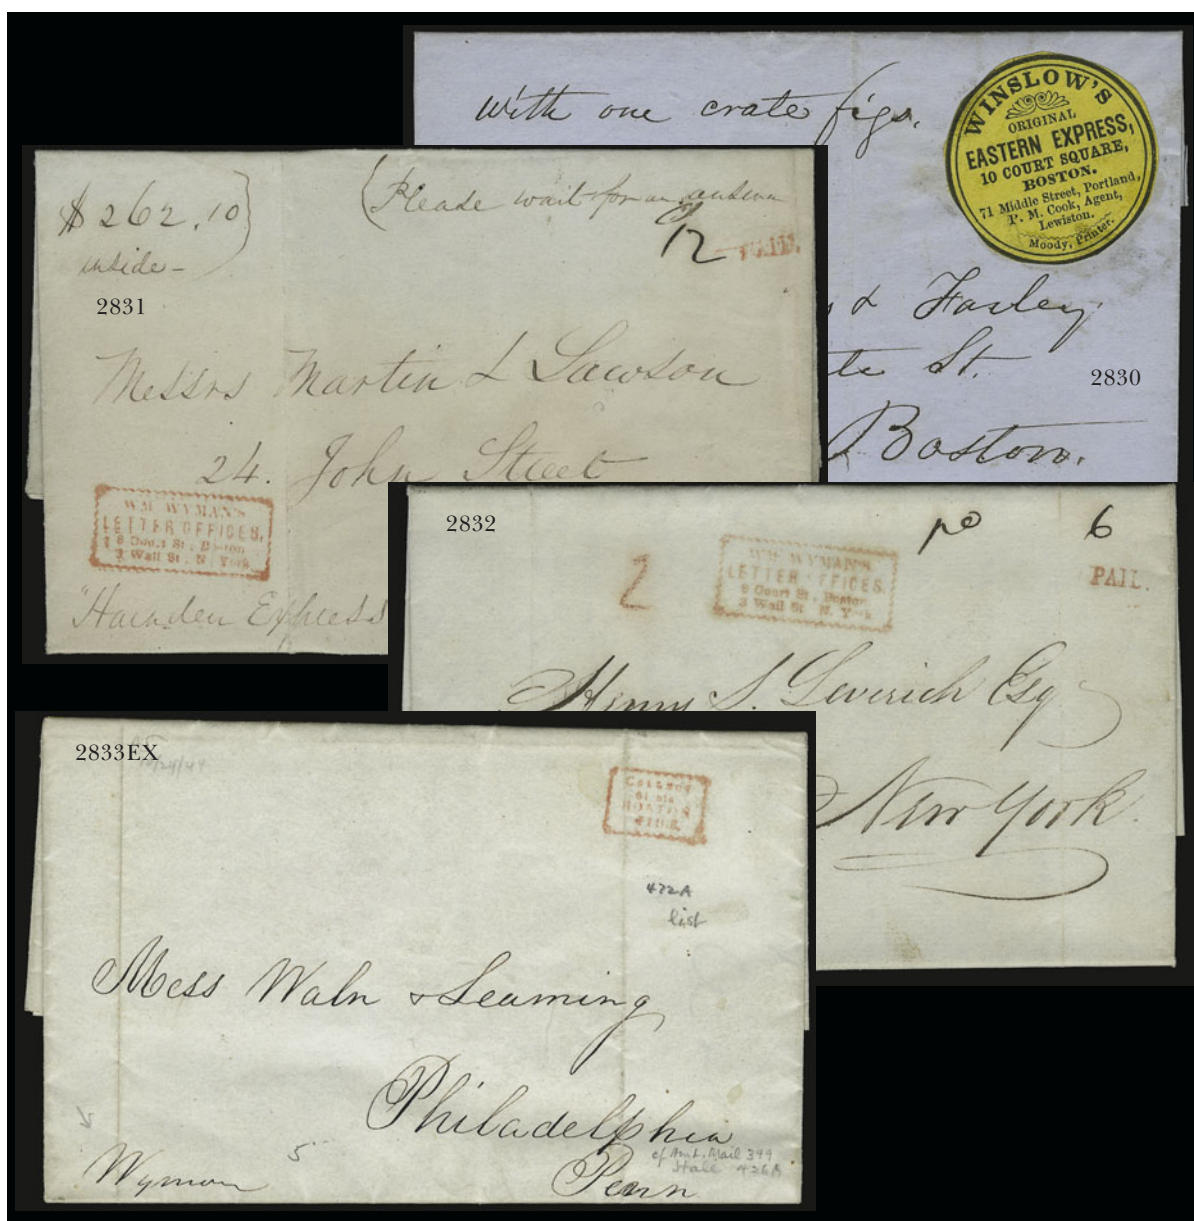 with one crate figs.
WINSLOW'S
ORIGINAL
EASTERN EXPRESS,
10 COURT SQUARE,
BOSTON.
71 Middle Street, Portland,
P. M. Cook, Agent,
Lewiston.
Moody, Printer.
& Farley
St.
2830
Boston.
$262.10
inside-
(Please wait for an answer
12
PAID.
2831
Messrs Martin & Lawson
24. John Street
WM. WYMAN'S
LETTER OFFICES,
8 Court St, Boston
3 Wall St, N. York
"Harnden Express
2832
6
2
WM. WYMAN'S
LETTER OFFICES.
8 Court St, Boston
3 Wall St N. York
PAI
Henry S. Leverich Esq
New York.
2833EX
BOSTON
422A
list
Mess Waln & Leaming
Philadelphia
Penn
Wyman
5